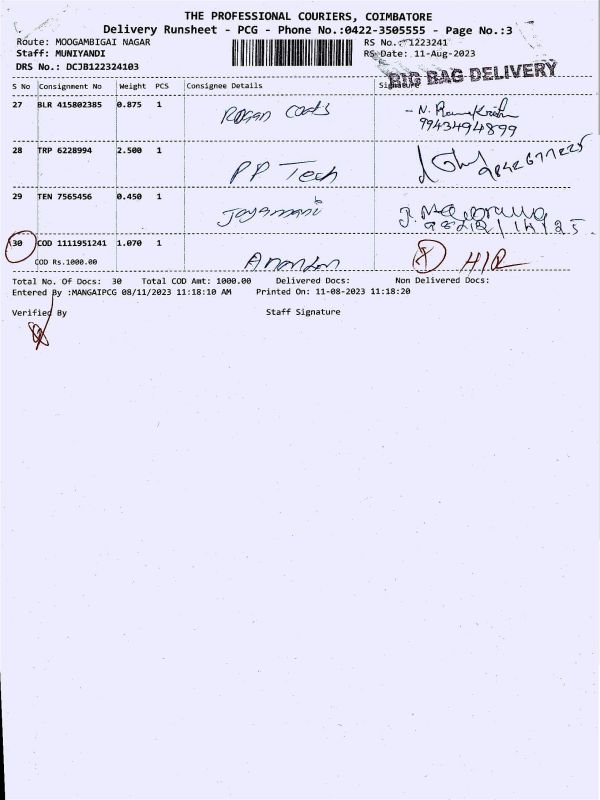 THE PROFESSIONAL COURIERS, COIMBATORE
Delivery Runsheet - PCG - Phone No.:0422-3505555 - Page No.:3
Route: MOOGAMBIGAI NAGAR RS No.: 1223241
Staff: MUNIYANDI RS Date: 11-Aug-2023
DRS No.: DCJB122324103
BIG BAG DELIVERY
S No Consignment No Weight PCS Consignee Details Signature
27 BLR 415802385 0.875 1 Rogan Coats
9943494899
28 TRP 6228994 2.500 1 PP Tech
29 TEN 7565456 0.450 1 Jayamani
30 COD 1111951241 1.070 1
COD Rs.1000.00
Total No. Of Docs: 30 Total COD Amt: 1000.00 Delivered Docs: Non Delivered Docs:
Entered By :MANGAIPCG 08/11/2023 11:18:10 AM Printed On: 11-08-2023 11:18:20
Verified By Staff Signature